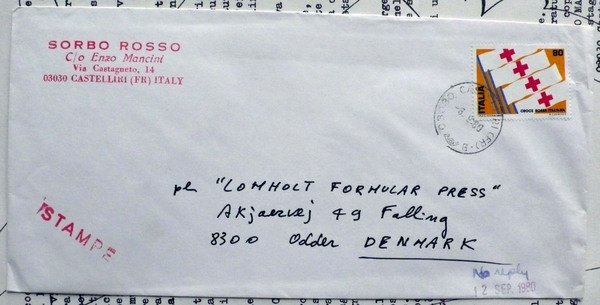 SORBO ROSSO
C/o Enzo Mancini
Via Castagneto, 14
03030 CASTELLIRI (FR) ITALY
80
ITALIA
CROCE ROSSA ITALIANA
"LOMHOLT FORMULAR PRESS"
Akjaervej 49 Falling
8300 Odder DENMARK
STAMPE
No reply
12 SEP. 1980